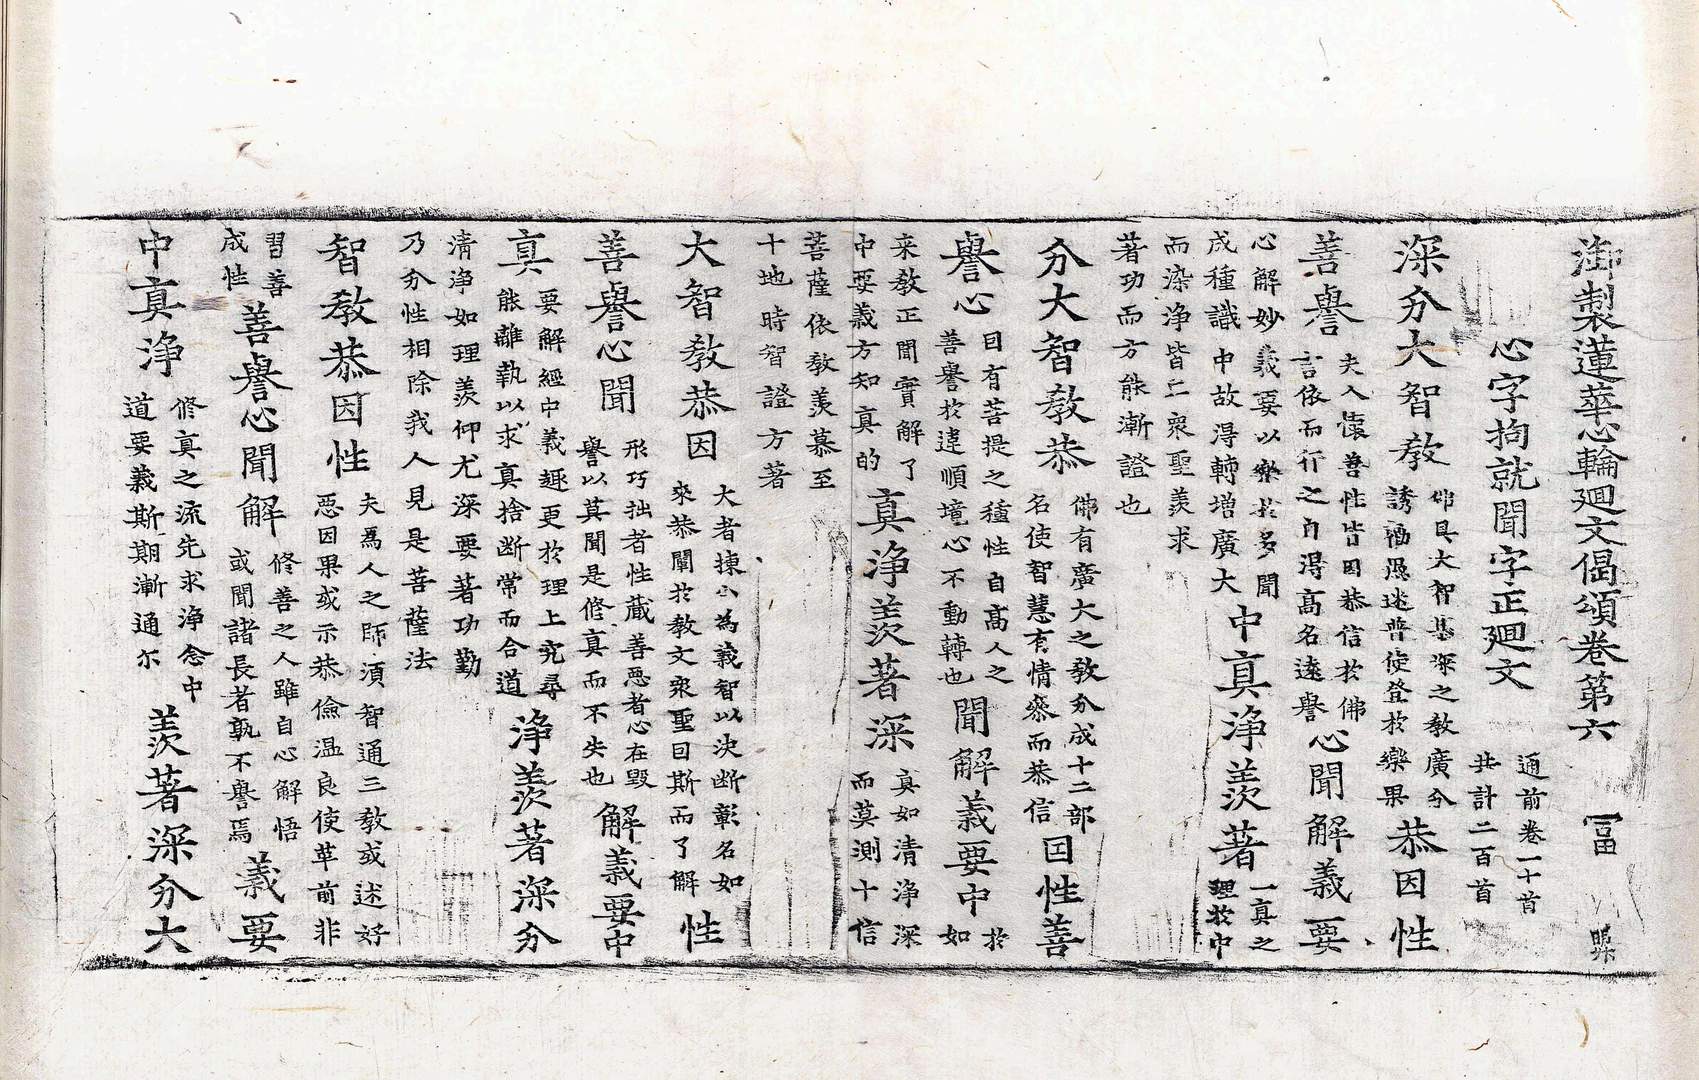 御製蓮華心輪廻文偈頌卷第六 冨
心字拘就聞字正廻文
通前卷一十首
共計二百首
深分大智教
佛具大智甚深之教廣分
誘誨愚迷普使登於樂果
恭因性
善譽
夫人懷善性皆因恭信於佛
言依而行之自得高名遠譽
心聞解義要
心解妙義要以樂於多聞
成種識中故得轉增廣大
中真淨羨著
一真之
理於中
而染淨皆亡衆聖羨求
著功而方能漸證也
分大智教恭
佛有廣大之教分成十二部
名使智慧有情發而恭信
因性善
譽心
因有菩提之種性自高人之
善譽於違順境心不動轉也
聞解義要中
於
如
来教正聞實解了
中要義方知真的
真淨羨著深
真如清淨深
而莫測十信
菩薩依教羨慕至
十地時智證方著
大智教恭因
大者揀小為義智以決断彰名如
來恭闡於教文衆聖因斯而了解
性
善譽心聞
形巧拙者性藏善惡者心在毀
譽以莫聞是修真而不失也
解義要中
真
要解經中義趣更於理上究尋
能離執以求真捨断常而合道
淨羨著深分
清淨如理羨仰尤深要著功勤
乃分性相除我人見是菩薩法
智教恭因性
夫為人之師須智通三教或述好
惡因果或示恭儉温良使革前非
習善
成性
善譽心聞解
修善之人雖自心解悟
或聞諸長者孰不譽焉
義要
中真淨
修真之流先求淨念中
道要義斯期漸通尓
羨著深分大